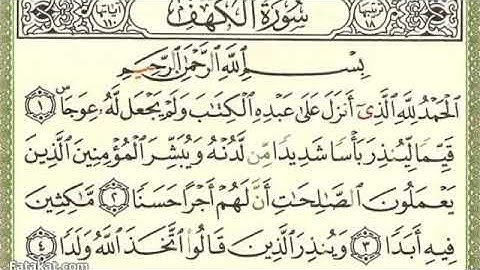 ترتيبها ١٨ سُورَةُ الْكَهْفِ آياتها ١١٠
بِسْمِ اللَّهِ الرَّحْمَٰنِ الرَّحِيمِ
الْحَمْدُ لِلَّهِ الَّذِي أَنزَلَ عَلَىٰ عَبْدِهِ الْكِتَٰبَ وَلَمْ يَجْعَل لَّهُ عِوَجَاۜ ١
قَيِّمًا لِّيُنذِرَ بَأْسًا شَدِيدًا مِّن لَّدُنْهُ وَيُبَشِّرَ الْمُؤْمِنِينَ الَّذِينَ
يَعْمَلُونَ الصَّٰلِحَٰتِ أَنَّ لَهُمْ أَجْرًا حَسَنًا ٢ مَّٰكِثِينَ
فِيهِ أَبَدًا ٣ وَيُنذِرَ الَّذِينَ قَالُوا اتَّخَذَ اللَّهُ وَلَدًا ٤
Fatakat.com